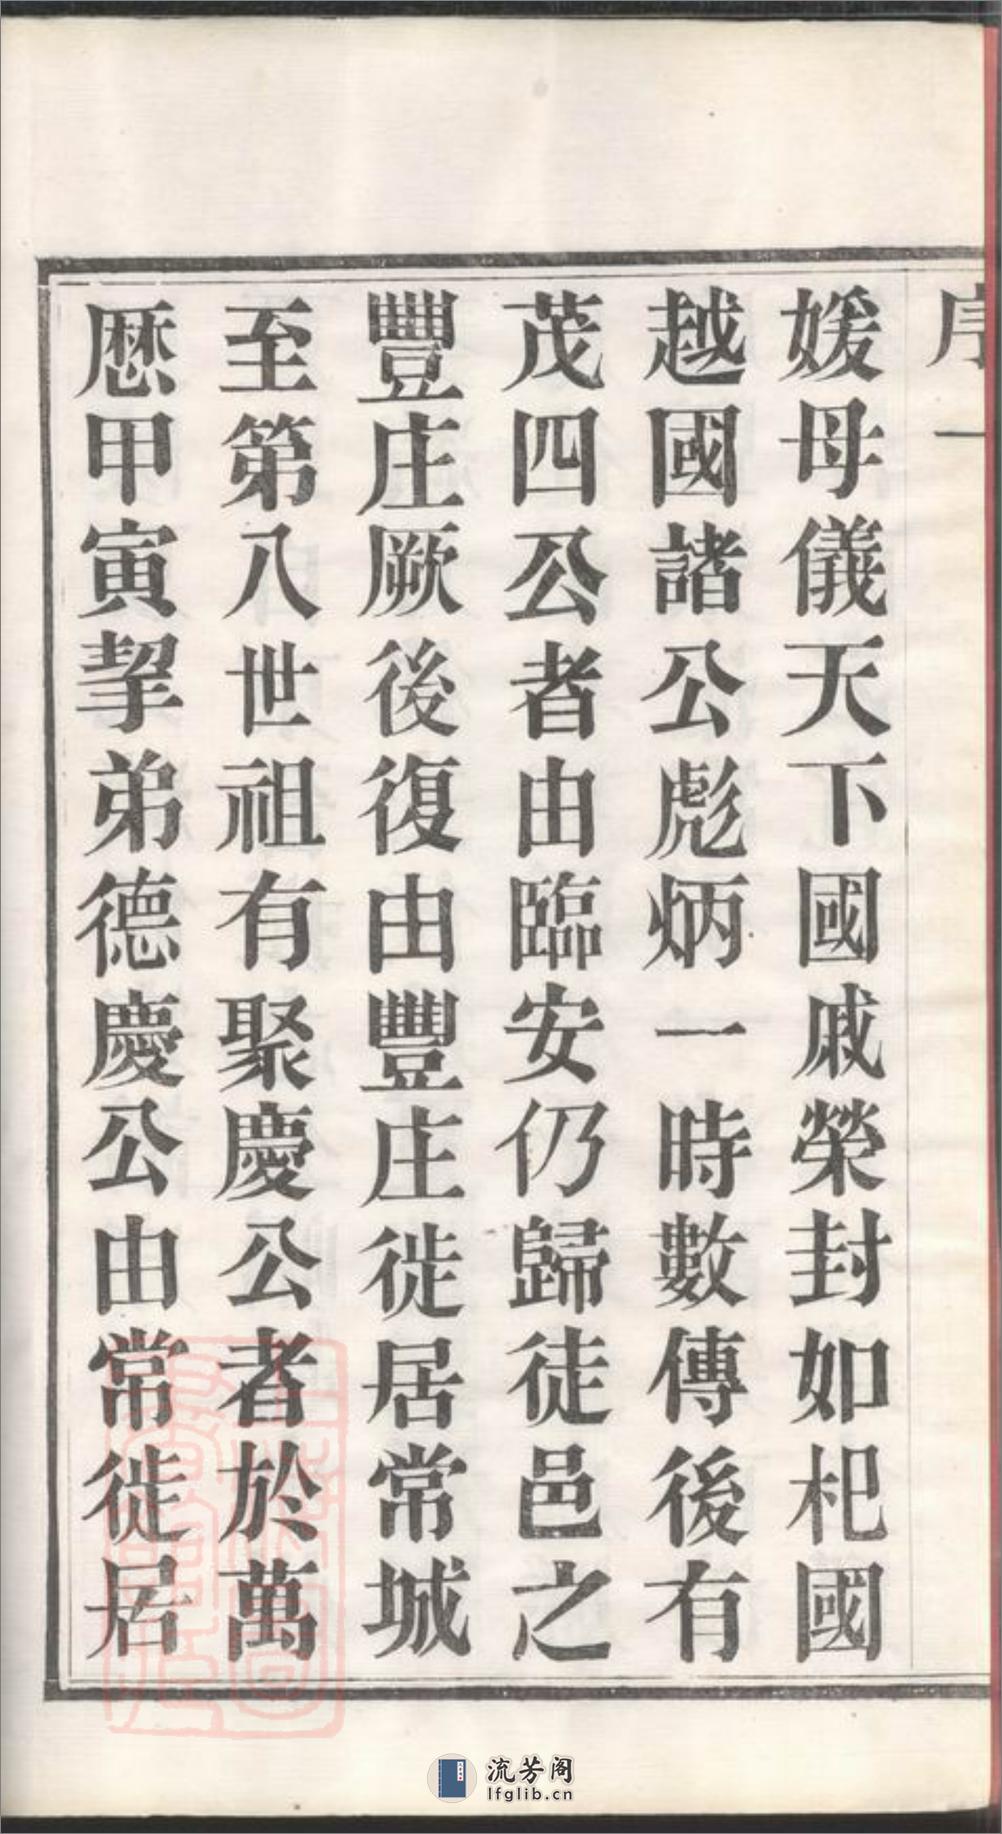 序 一
媛母儀天下國戚榮封如杞國
越國諸公彪炳一時數傳後有
茂四公者由臨安仍歸徒邑之
豐庄厥後復由豐庄徙居常城
至第八世祖有聚慶公者於萬
厯甲寅挈弟德慶公由常徙居
流芳阁
lfglib.cn